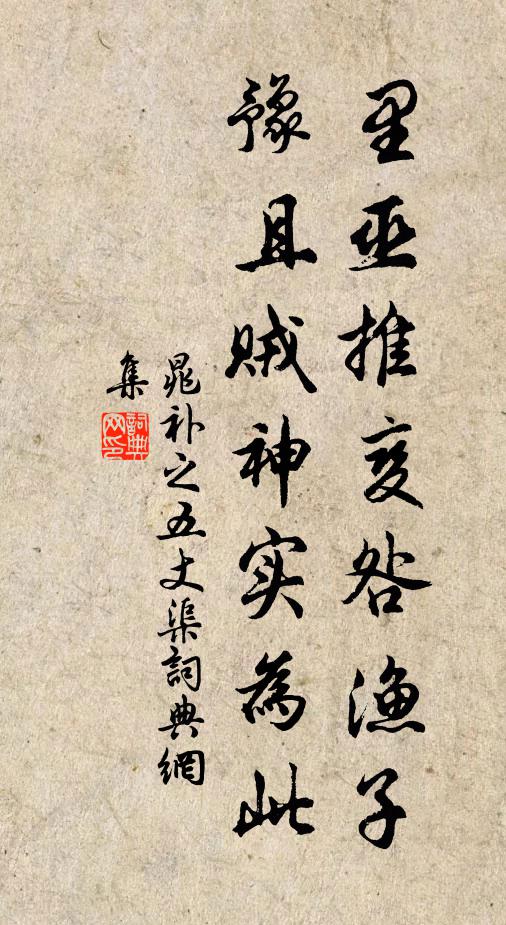 里巫推变咎渔子
豫且贼神实为此
晁补之五丈渠詞典網
集
詞典网印